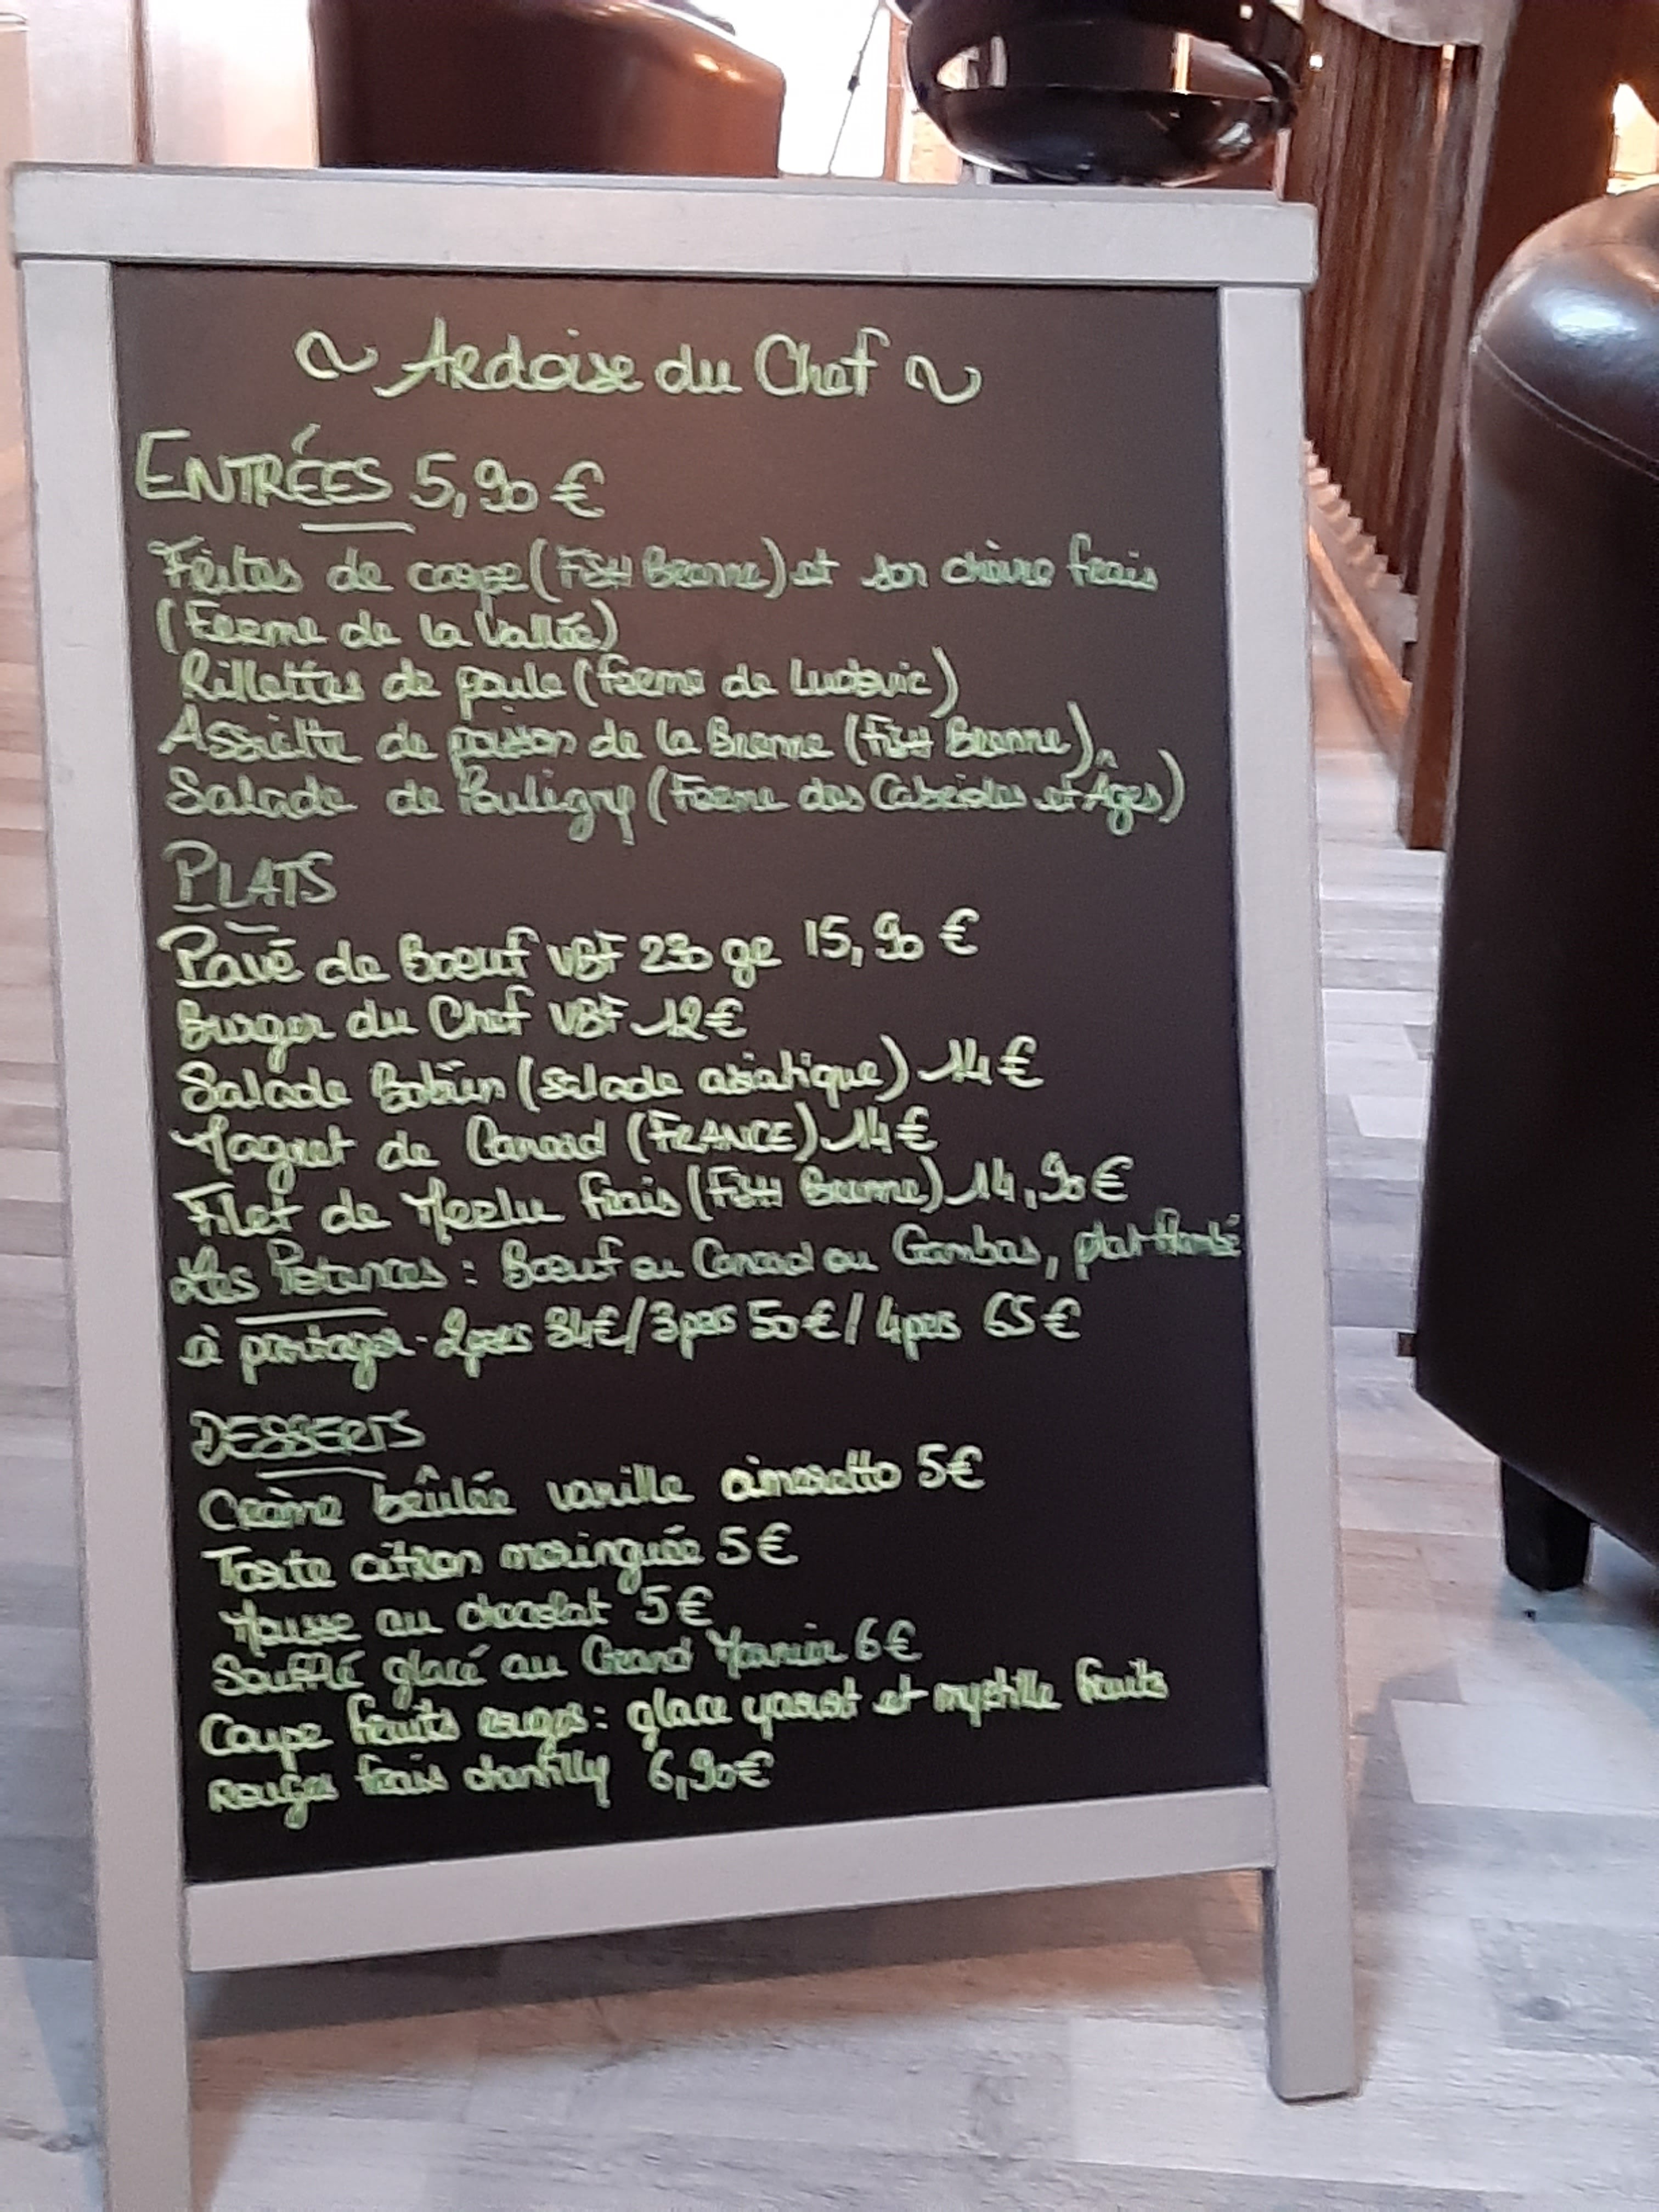 ~ Ardoise du Chef ~
ENTRÉES 5,90 €
Frites de carpe (FISH Brenne) et son chèvre frais
(Ferme de la Vallée)
Rillettes de poule (ferme de Ludovic)
Assiette de poisson de la Brenne (FISH Brenne)
Salade de Pouligny (Ferme des Cabrioles et Ages)
PLATS
Pavé de Boeuf VBF 230 gr 15,90 €
Burger du Chef VBF 12€
Salade Bobun (salade asiatique) 14€
Magret de Canard (FRANCE) 14€
Filet de Merlu frais (FISH Brenne) 14,90€
Les Potences : Boeuf ou Canard ou Gambas, plat flambé
à partager - 2pers 34€/3pers 50€/4pers 65€
DESSERTS
Crème brûlée vanille amaretto 5€
Tarte citron meringuée 5€
Mousse au chocolat 5€
Soufflé glacé au Grand Marnier 6€
Coupe fruits rouges : glace yaourt et myrtille fruits
rouges frais chantilly 6,90€